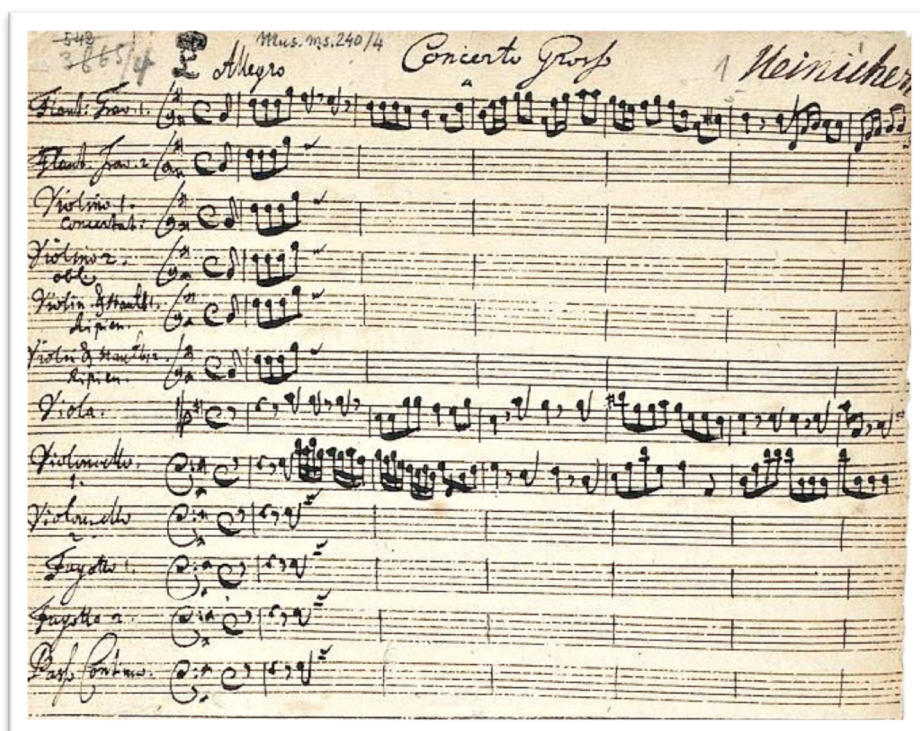 542
3865/4
Mus. ms. 240/4
Allegro
Concerto Gross
1
Heinichen
Flaut: Trav. 1.
Flaut. Trav. 2
Violino 1.
Concertat:
Violino 2.
obl.
Violin & Hautb 1.
Ripien.
Violin & Hautb 2.
Ripien.
Viola.
Violoncello.
1.
Violoncello
2.
Fagotto 1.
Fagotto 2.
Bass Continuo.